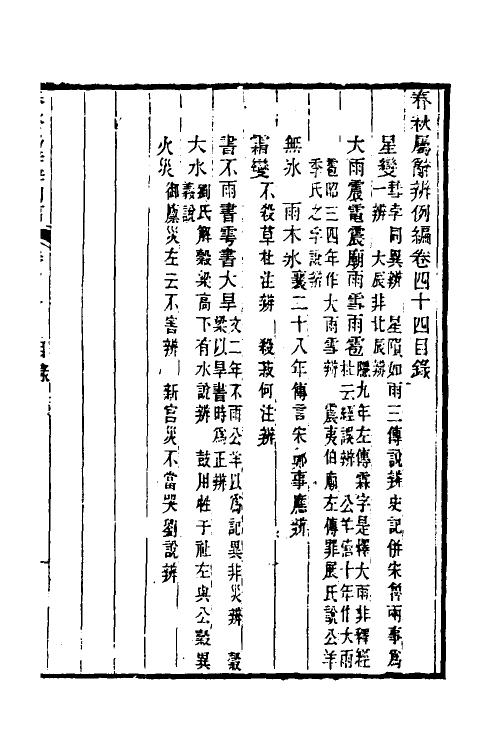 春秋屬辭辨例編卷四十四目錄
星變 彗孛同異辨 星隕如雨三傳說辨 史記併宋魯兩事為
一辨 大辰非北辰辨
大雨震電震廟雨雪雨雹 隱九年左傳霖字是釋大雨非釋經
杜云經誤辨 公羊僖十年作大雨
雹昭三四年作大雨雪辨 震夷伯廟左傳罪展氏說公羊
季氏之孚說辨
無冰 雨木冰 襄二十八年傳言宋鄭事應辨
霜變 不殺草杜注辨 殺菽何注辨
書不雨書雩書大旱 文二年不雨公羊以為記異非災辨 穀
梁以旱書時為正辨
大水 劉氏解穀梁高下有水說辨 鼓用牲于社左與公穀異
義說
火災 御廩災左云不害辨 新宮災不當哭劉說辨
目錄